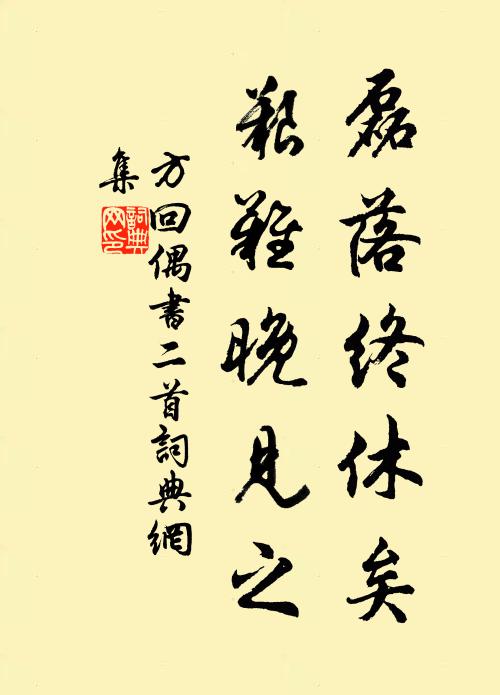 磊落終休矣
艱難晚見之
方回偶書二首詞典網
集
詞典网印